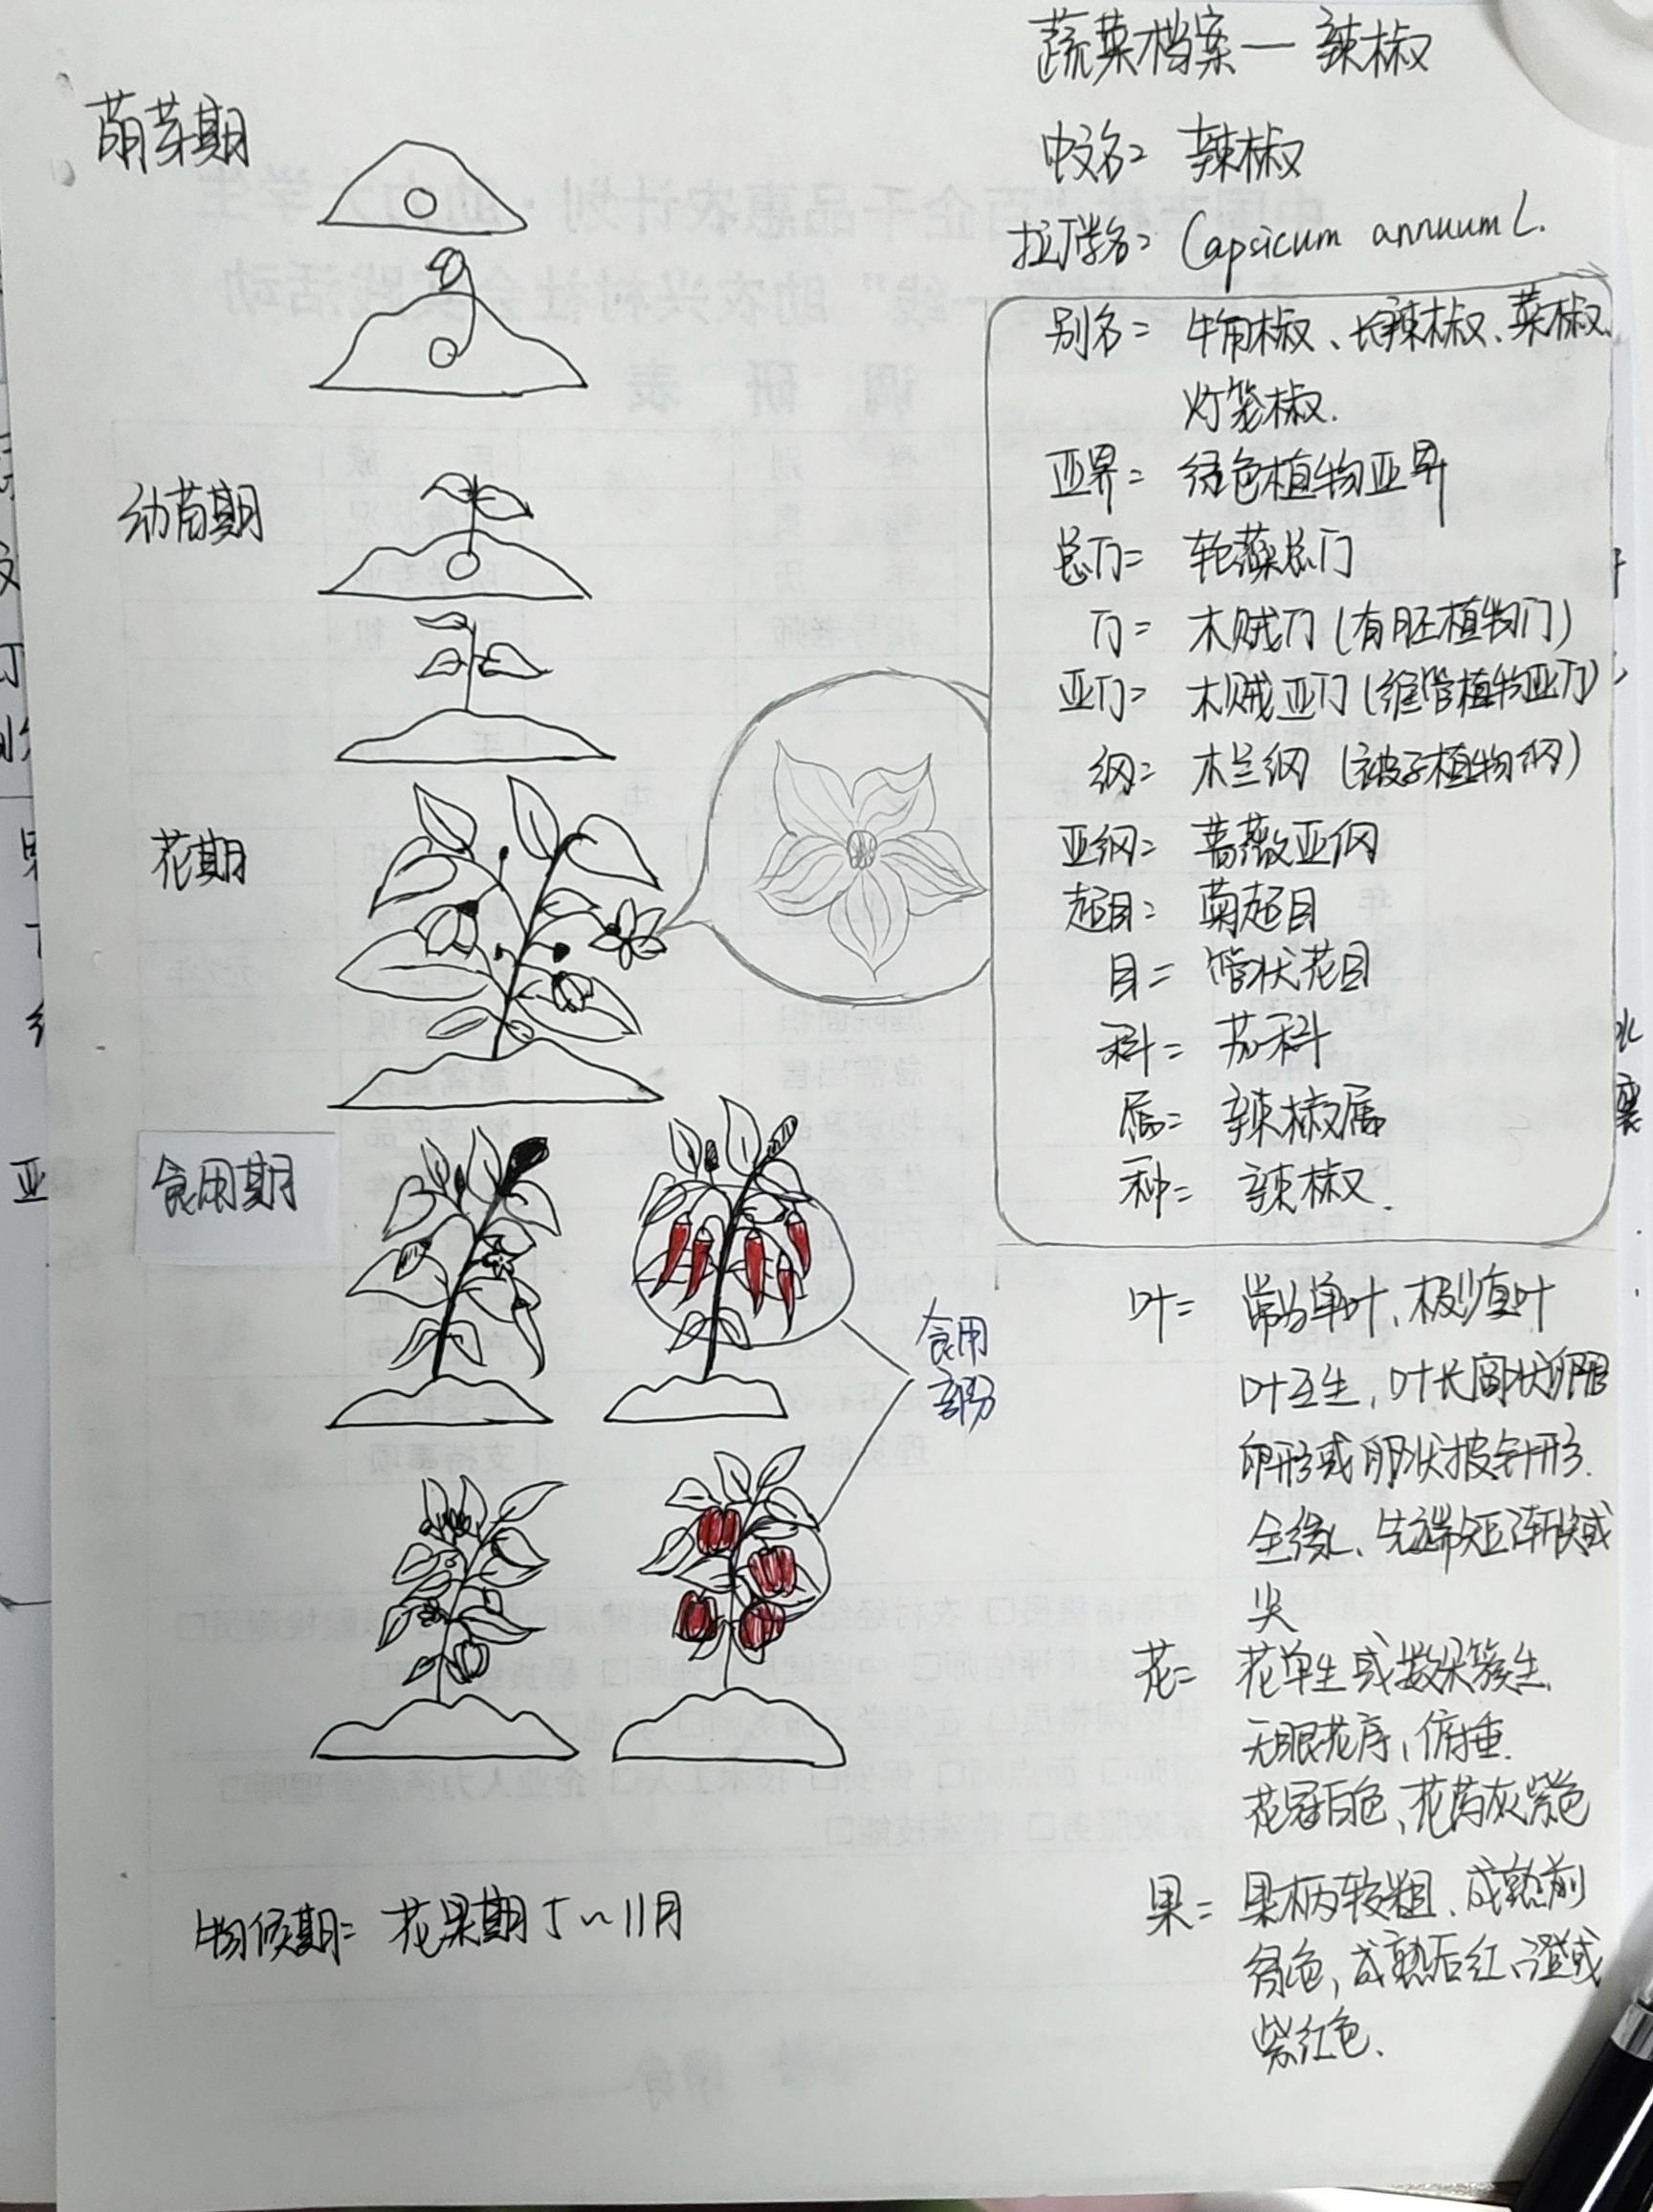 蔬菜档案—辣椒
中文名：辣椒
拉丁学名：Capsicum annuum L.
别名：牛角椒、长辣椒、菜椒、
灯笼椒.
亚界：绿色植物亚界
总门：轮藻总门
门：木贼门(有胚植物门)
亚门：木贼亚门(维管植物亚门)
纲：木兰纲(被子植物纲)
亚纲：蔷薇亚纲
超目：菊超目
目：管状花目
科：茄科
属：辣椒属
种：辣椒.
叶：常为单叶、极少复叶
叶互生,叶长圆状卵形
卵形或卵状披针形.
全缘、先端短渐尖或
尖
花：花单生或数朵簇生、
无限花序、俯垂.
花冠白色、花药灰紫色
果：果柄较粗、成熟前
绿色,成熟后红、澄或
紫红色.
萌芽期
幼苗期
花期
食用期
食用
部分
物候期：花果期5~11月